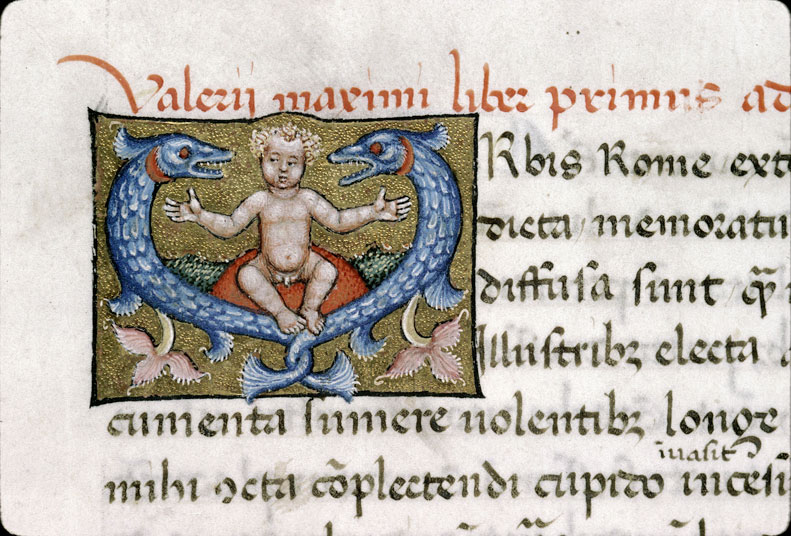 Valerii maximi liber primus ad
URbis Rome exte
dicta memoratu
diffusa sunt qp̄
Illustribꝫ electa
cumenta sumere uolentibꝫ longe
iuasit
mihi ꝯcta cōplectendi cupido incesi